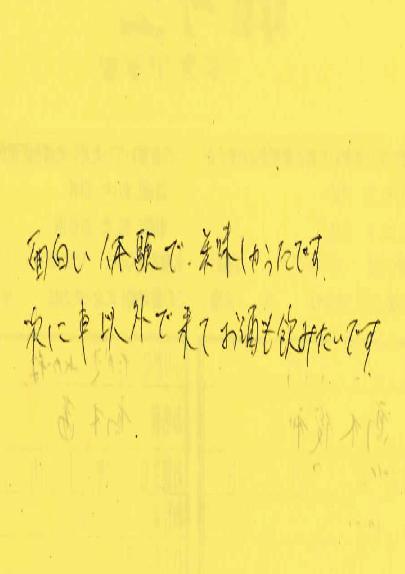 面白い体験で、美味しかったです
次に車以外で来てお酒も飲みたいです